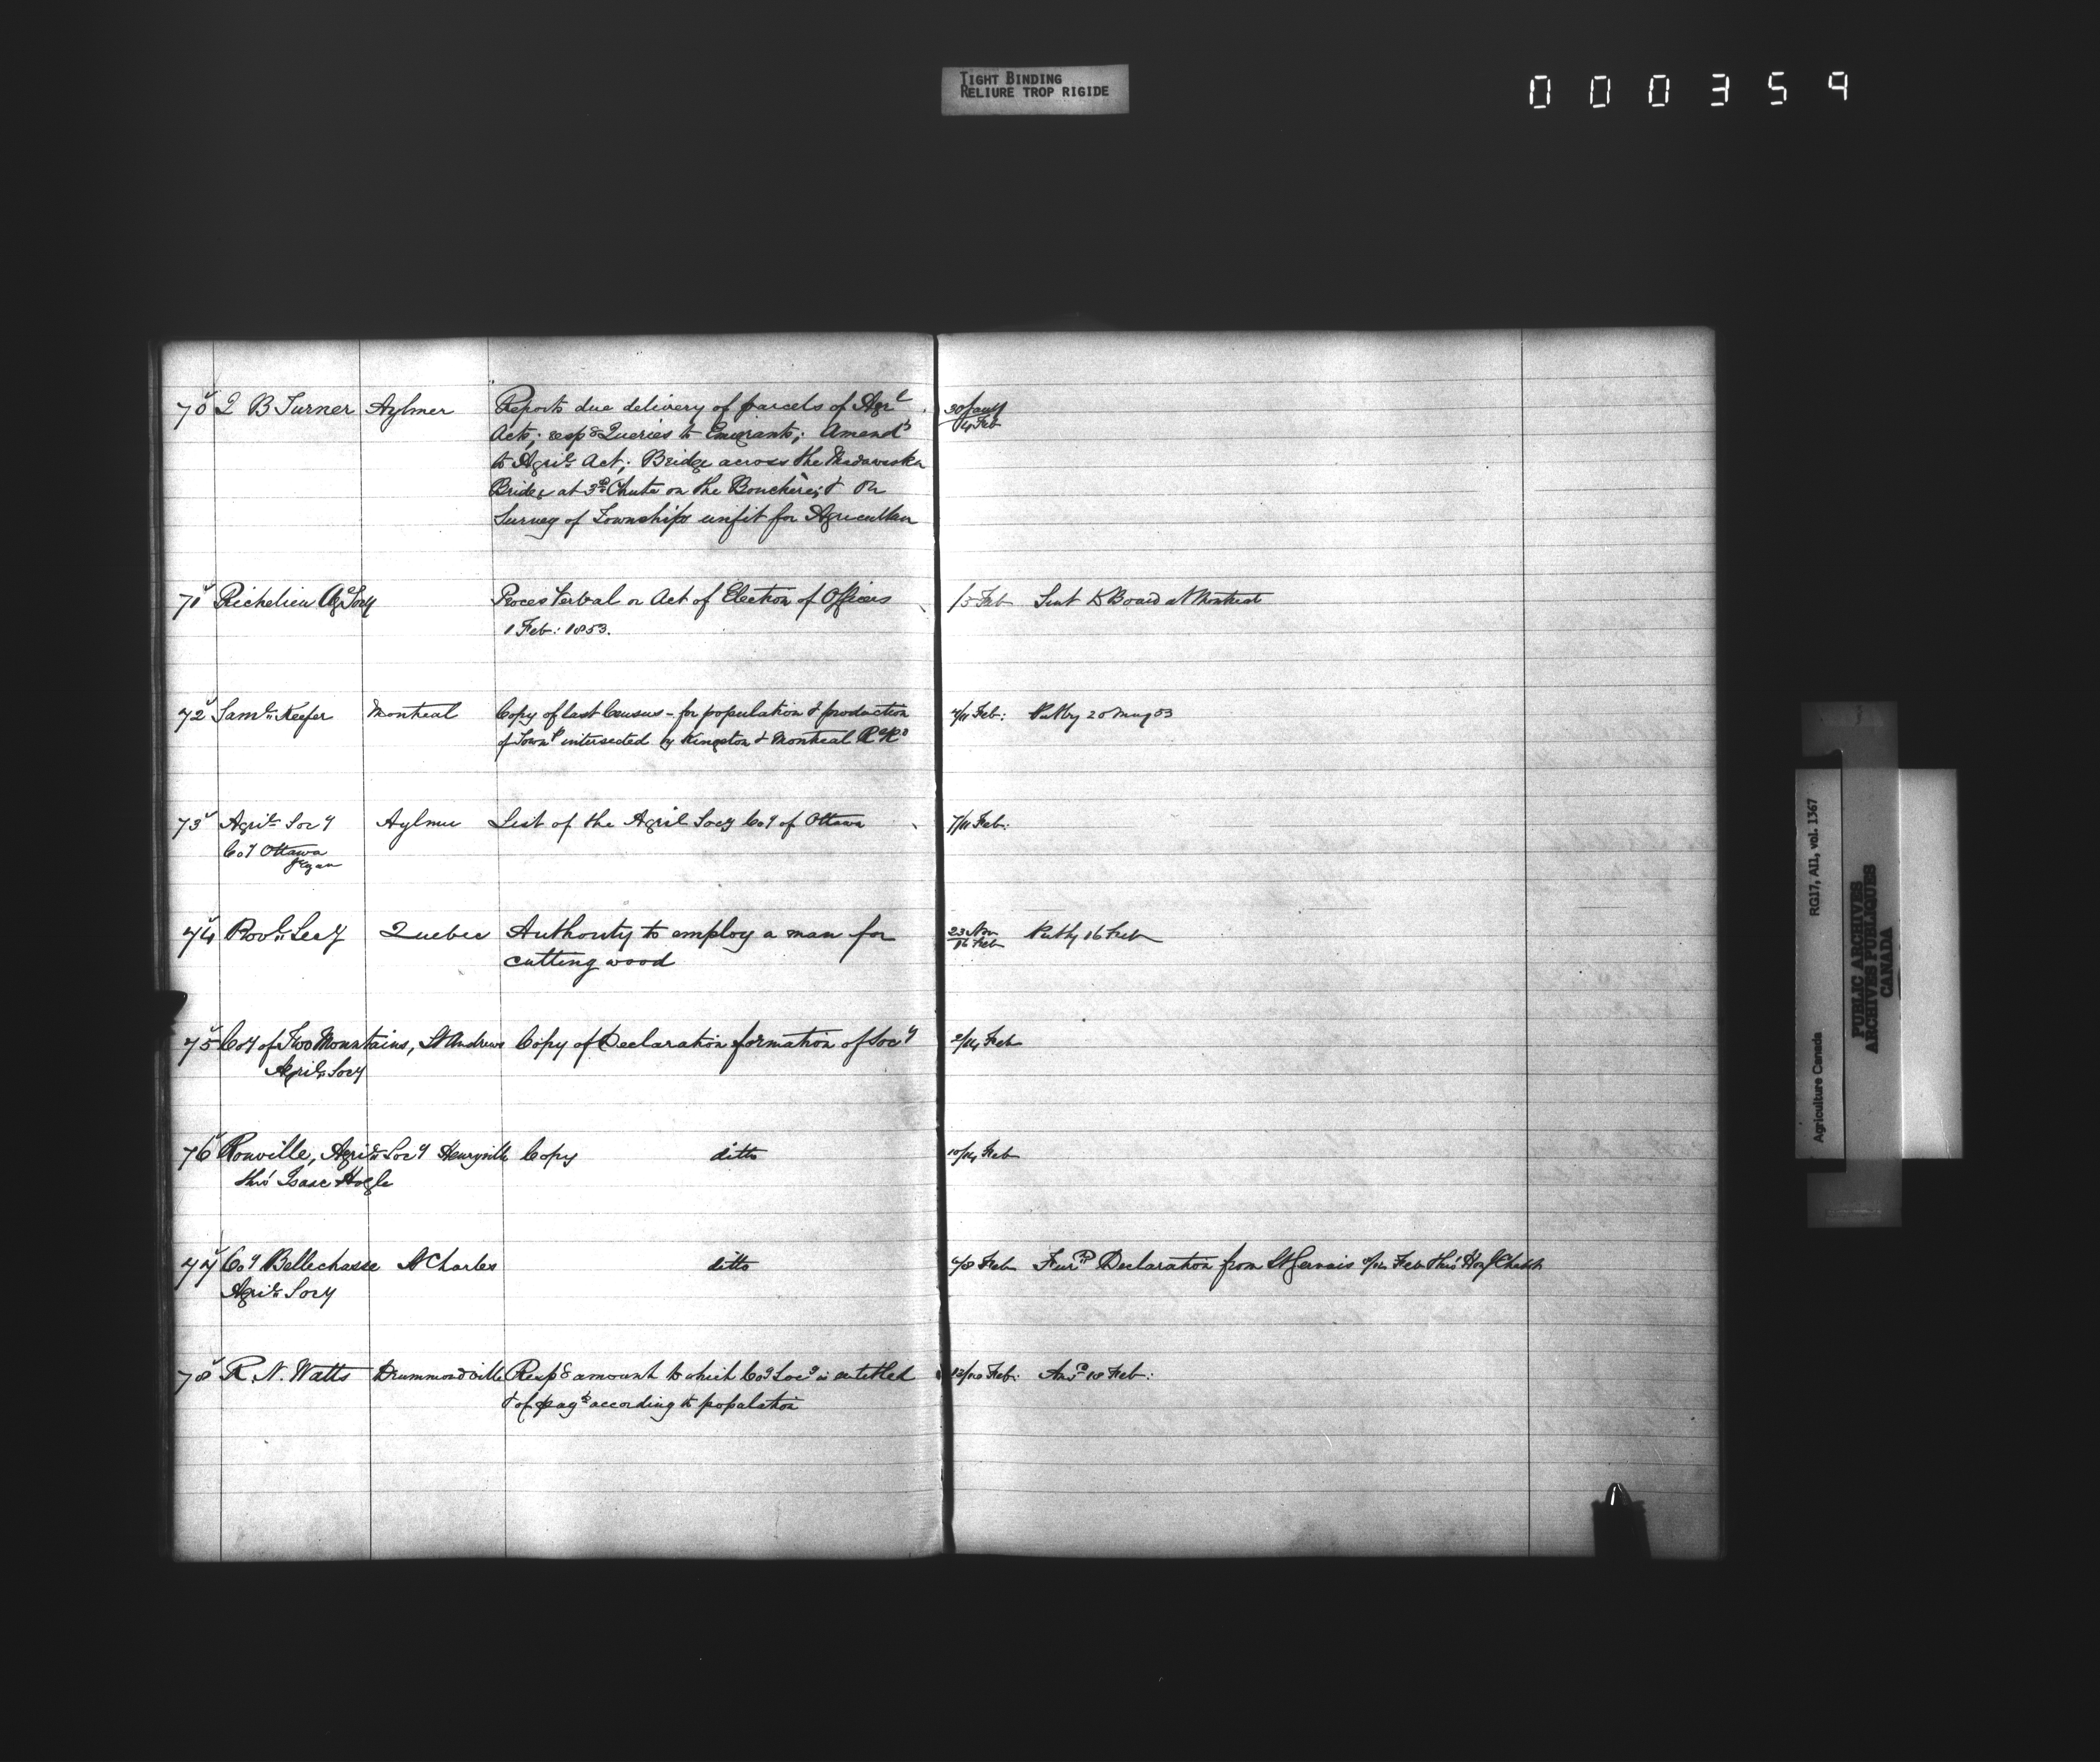 TIGHT BINDING
RELIURE TROP RIGIDE
000359
70 Q B Turner Aylmer Reports due delivery of parcels of Agrl 30 Jany / 4 Feb
Acts; respg Queries to Emigrants; Amendts
to Agril Act; Bridge across the Madawaska
Bridge at 3rd Chute on the Bonchère; & on
Survey of Townships unfit for Agriculture
71 Richelieu Agl Socy Proces Verbal or Act of Election of Officers /5 Feb Sent to Board at Montreal
1 Feb: 1853.
72 Saml Keefer Montreal Copy of last Census - for population & production 4/11 Feb: Put by 20 May 53
of Towns intersected by Kingston & Montreal RlRd
73 Agril Socy Aylmer List of the Agril Socy Coy of Ottawa 7/11 Feb:
Coy Ottawa
J Egan
74 Provl Secy Quebec Authority to employ a man for 23 Nov / 16 Feb Put by 16 Feb
cutting wood
75 Coy of Two Mountains, St Andrews Copy of Declaration formation of Socy 2/14 Feb
Agril Socy
76 Rouville, Agril Socy Henryville Copy ditto 10/14 Feb
thro' Isaac Hogle
77 Coy Bellechasse St Charles ditto 4/8 Feb Furr Declaration from St Gervais 8/12 Feb thro'
Agril Socy
78 R. N. Watts Drummondville Respg amount to which Coy Socy is entitled 12/16 Feb: Ansd 18 Feb:
& of payt according to population
RG17, AII, vol. 1367
Agriculture Canada
PUBLIC ARCHIVES
ARCHIVES PUBLIQUES
CANADA